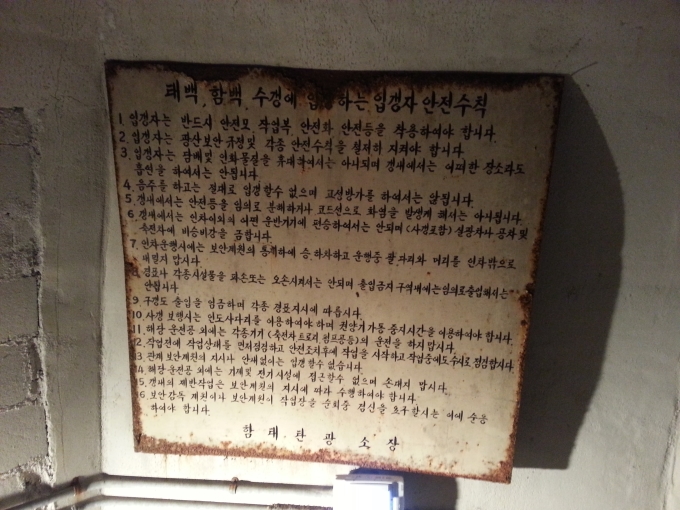 태백, 함백, 수갱에 입갱하는 입갱자 안전수칙
1. 입갱자는 반드시 안전모, 작업복, 안전화, 안전등을 착용하여야 합니다.
2. 입갱자는 광산보안규정및 각종 안전수칙을 철저히 지켜야 합니다.
3. 입갱자는 담배및 인화물질을 휴대하여서는 아니되며 갱내에서는 어떠한 장소라도
흡연을 하여서는 안됩니다.
4. 음주를 하고는 절대로 입갱할수 없으며 고성방가를 하여서는 않됩니다.
5. 갱내에서는 안전등을 임의로 분해하거나 코드선으로 화염을 발생게 해서는 아니됩니다.
6. 갱내에서는 인차이외의 어떤 운반기기에 편승하여서는 안되며 (사갱포함) 실광차나 공차 및
축전차에 비승비강을 금합니다.
7. 인차운행시에는 보안계원의 통제하에 승, 하차하고 운행중 팔, 다리와 머리를 인차밖으로
내밀지 맙시다.
8. 경표나 각종시설물을 파손또는 오손시켜서는 안되며 출입금지 구역내에는 임의로출입해서는
안됩니다.
9. 구갱도 출입을 엄금하며 각종 경표지시에 따릅시다.
10. 사갱 보행시는 인도사다리를 이용하여야 하며 권양기가동 중지시간을 이용하여야 합니다.
11. 해당 운전공 외에는 각종기기 (축전차,트로지,펌프공등)의 운전을 하지맙시다.
12. 작업전에 작업상태를 면저점검하고 안전조치후에 작업을 시작하고 작업중에도수시로 점검합시다.
13. 관계 보안계원의 지시나 안내없이는 입갱할수 없습니다.
14. 해당 운전공 외에는 기계및 전기시설에 접근할수 없으며 손대지 맙시다.
15. 갱내의 제반작업은 보안계원의 지시에 따라 수행하여야 합니다.
6. 보안감독 계원이나 보안계원이 작업장을 순회중 검신을 요구할시는 이에 순응
하여야 합니다.
함 태 탄 광 소 장